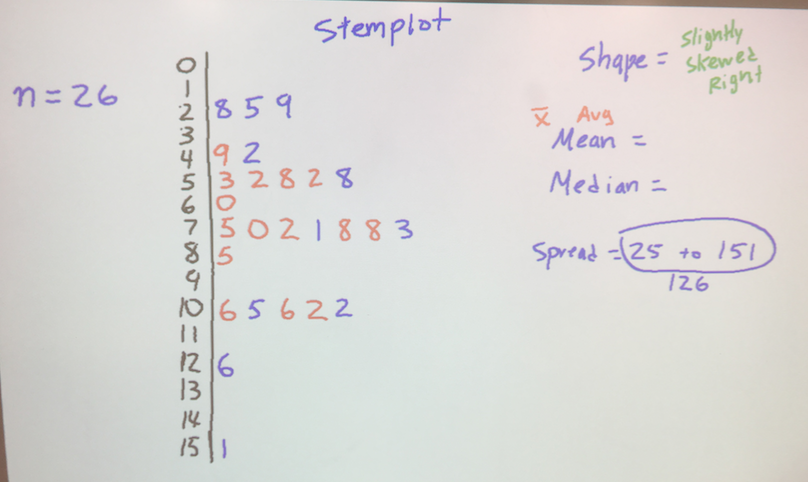 Stemplot
n = 26
0
1
2 8 5 9
3
4 9 2
5 3 2 8 2 8
6 0
7 5 0 2 1 8 8 3
8 5
9
10 6 5 6 2 2
11
12 6
13
14
15 1
Shape = Slightly
Skewed
Right
x̄ Avg
Mean =
Median =
Spread = 25 to 151
126